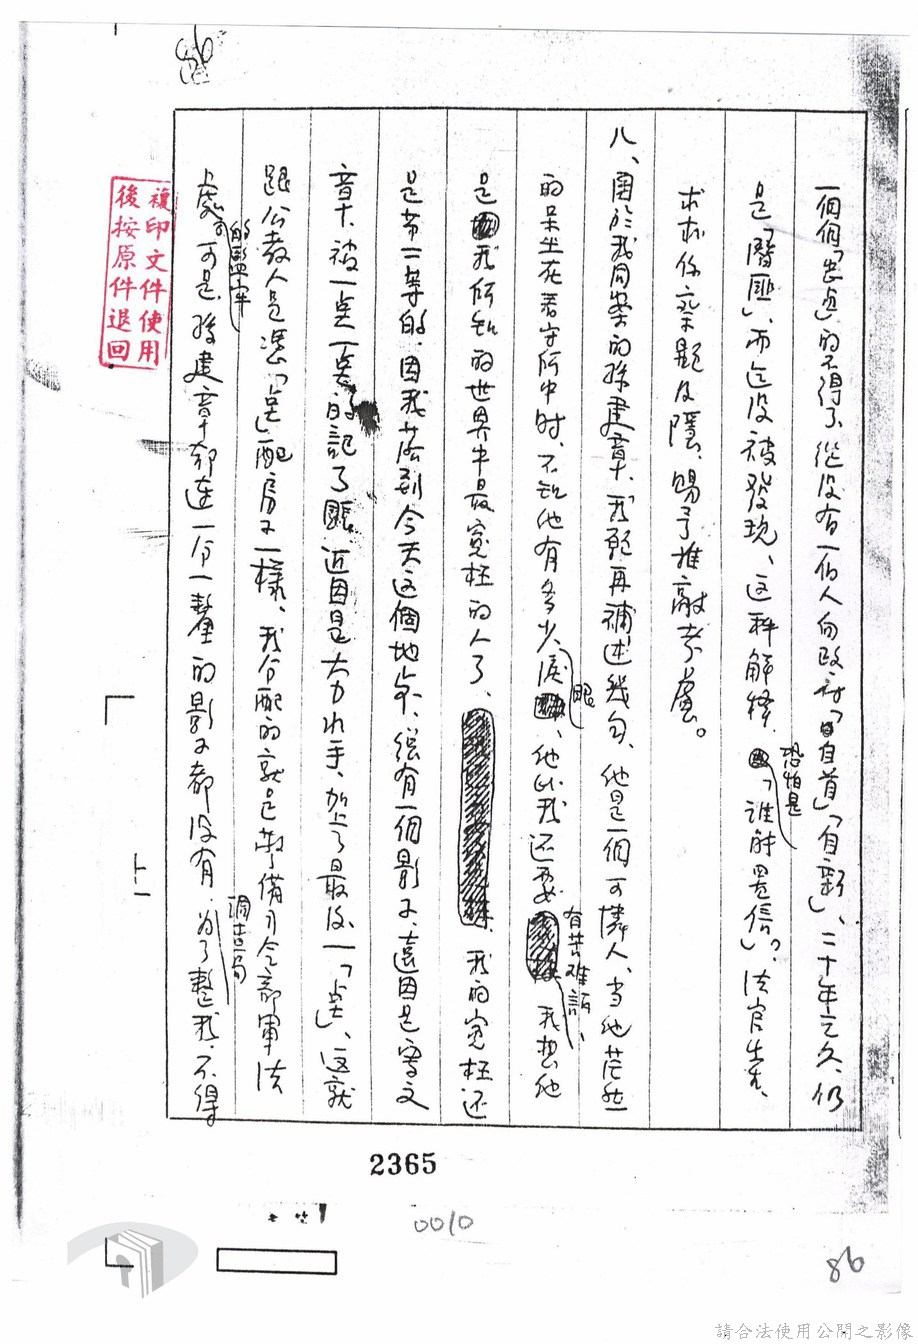 86
一個個「出点」的不得了、從沒有一個人向政府「自首」「自新」、二十年之久、仍
是「潛匪」、而迄沒被發現、這种解釋、恐怕是「誰能置信」?、法官先生、
求求你
賜予推敲考慮。
八、關於我同案的孫建章、我願再補述幾句、他是一個可憐人、当他茫然
的呆坐在看守所中时、不知他有多少眼淚、他比我还要有苦難訴、我想他
是我所知的世界中最冤枉的人了、我的冤枉还
是第二等的、因我落到今天这個地步、總有一個影子、遠因是寫文
章、被一点一点的記了賬、近因是大力水手、加上了最後一「点」、这就
跟公教人員憑「点」配房子一樣、我分配的就是警備司令部軍法
處的監牢、可是、孫建章却連一分一釐的影子都沒有、調查局为了整我、不得
複印文件使用
後按原件退回
2365
0010
86
請合法使用公開之影像